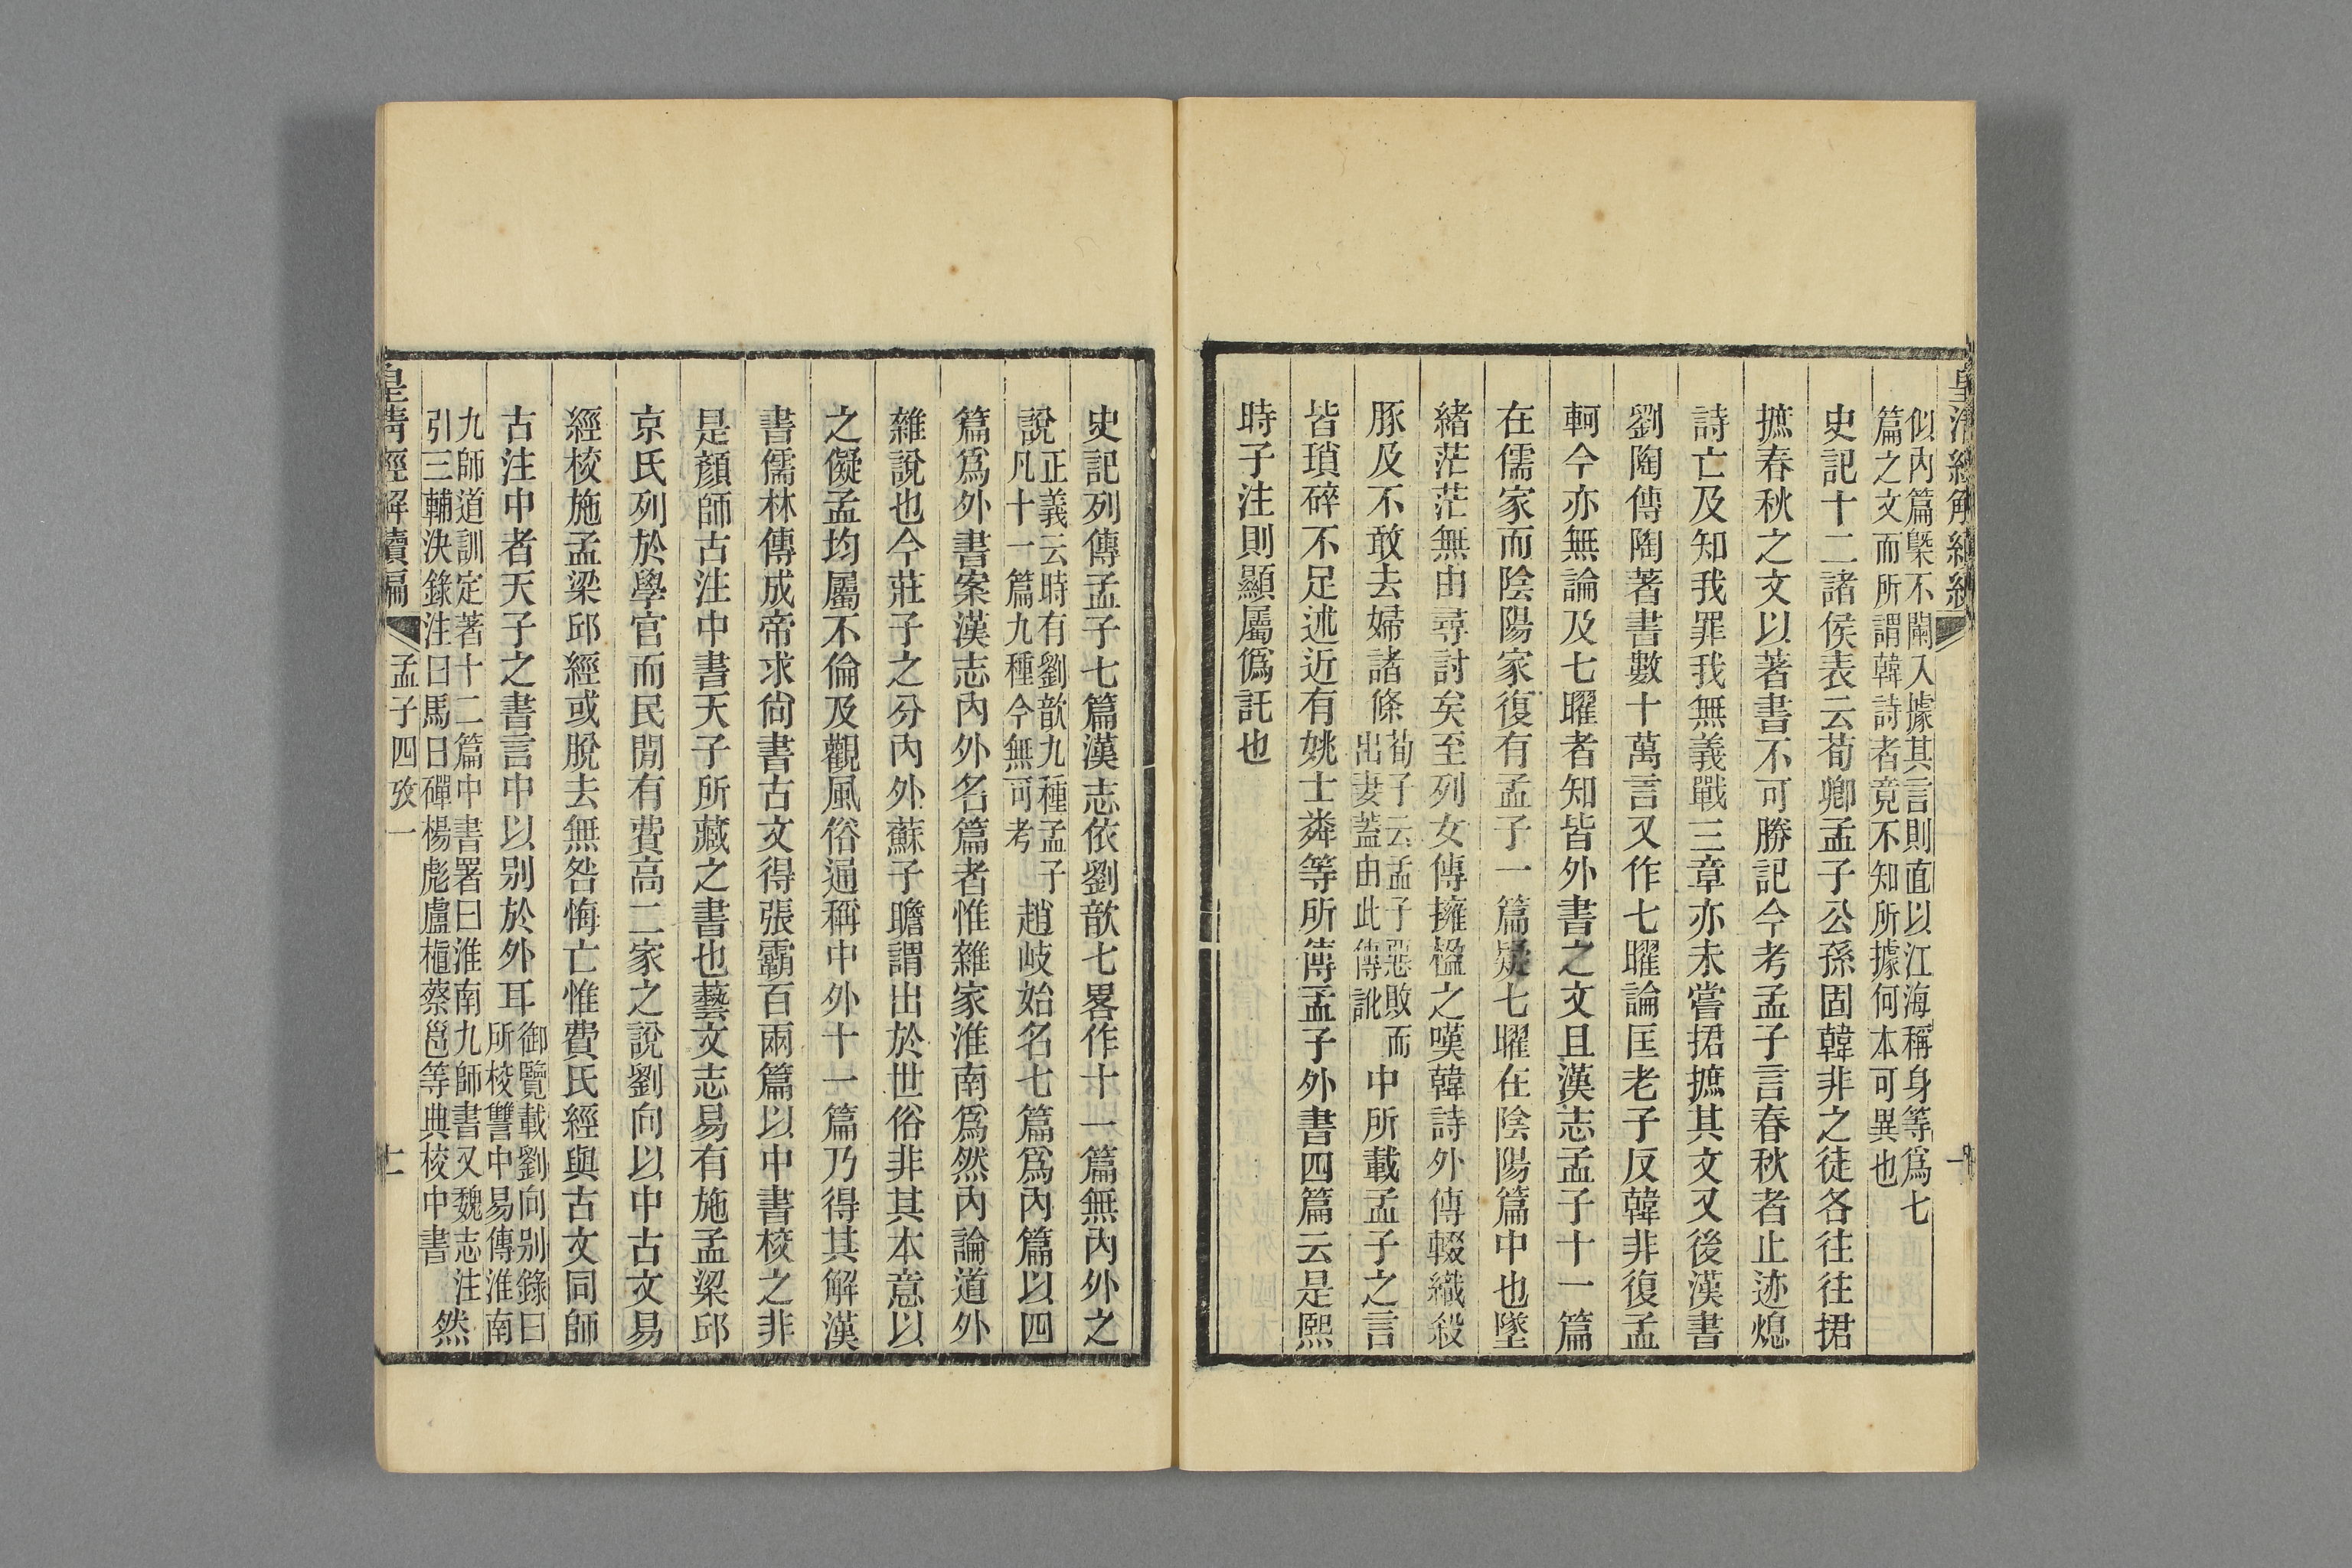 似內篇槩不闌入據其言則直以江海稱身等爲七
篇之文而所謂韓詩者竟不知所據何本可異也
史記十二諸侯表云荀卿孟子公孫固韓非之徒各往往捃
摭春秋之文以著書不可勝記今考孟子言春秋者止迹熄
詩亡及知我罪我無義戰三章亦未嘗捃摭其文又後漢書
劉陶傳陶著書數十萬言又作七曜論匡老子反韓非復孟
軻今亦無論及七曜者知皆外書之文且漢志孟子十一篇
在儒家而陰陽家復有孟子一篇疑七曜在陰陽篇中也墜
緒茫茫無由尋討矣至列女傳擁楹之嘆韓詩外傳輟織殺
豚及不敢去婦諸條荀子云孟子惡敗而出妻蓋由此傳訛中所載孟子之言
皆瑣碎不足述近有姚士粦等所傳孟子外書四篇云是熙
時子注則顯屬僞託也
史記列傳孟子七篇漢志依劉歆七畧作十一篇無內外之
說正義云時有劉歆九種孟子凡十一篇九種今無可考趙岐始名七篇爲內篇以四
篇爲外書案漢志內外名篇者惟雜家淮南爲然內論道外
雜說也今莊子之分內外蘇子瞻謂出於世俗非其本意以
之儗孟均屬不倫及觀風俗通稱中外十一篇乃得其解漢
書儒林傳成帝求尙書古文得張霸百兩篇以中書校之非
是顏師古注中書天子所藏之書也藝文志易有施孟梁邱
京氏列於學官而民閒有費高二家之說劉向以中古文易
經校施孟梁邱經或脫去無咎悔亡惟費氏經與古文同師
古注中者天子之書言中以别於外耳御覽載劉向别錄曰所校讐中易傳淮南
九師道訓定著十二篇中書署曰淮南九師書又魏志注
引三輔決錄注曰馬日磾楊彪盧植蔡邕等典校中書然
皇清經解續編
孟子四攷一
十一